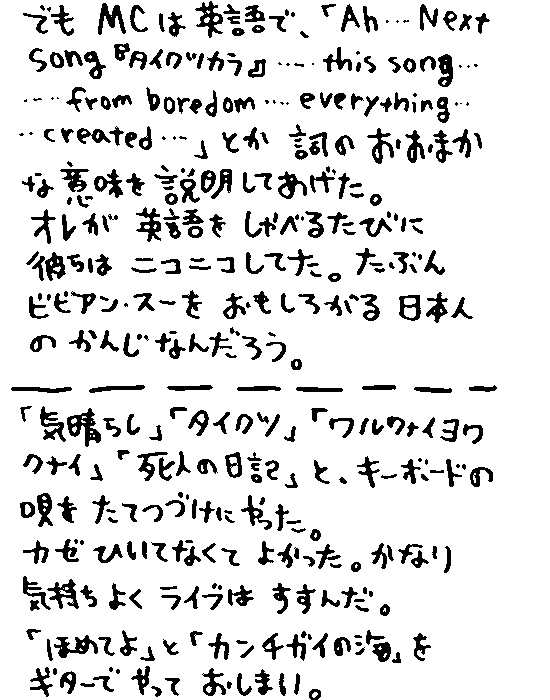 でも MCは 英語で、「Ah… Next
song『タイクツカラ』…… this song…
…… from boredom…… everything…
…created…」とか 詞の おおまか
な 意味を 説明してあげた。
オレが 英語を しゃべるたびに
彼らは ニコニコしてた。たぶん
ビビアン・スーを おもしろがる 日本人
の かんじなんだろう。
「気晴らし」「タイクツ」「ワルクナイヨワ
クナイ」「死人の日記」と、キーボードの
唄を たてつづけにやった。
カゼ ひいてなくて よかった。かなり
気持ちよく ライブは すすんだ。
「ほめてよ」と「カンチガイの海」を
ギターで やって おしまい。